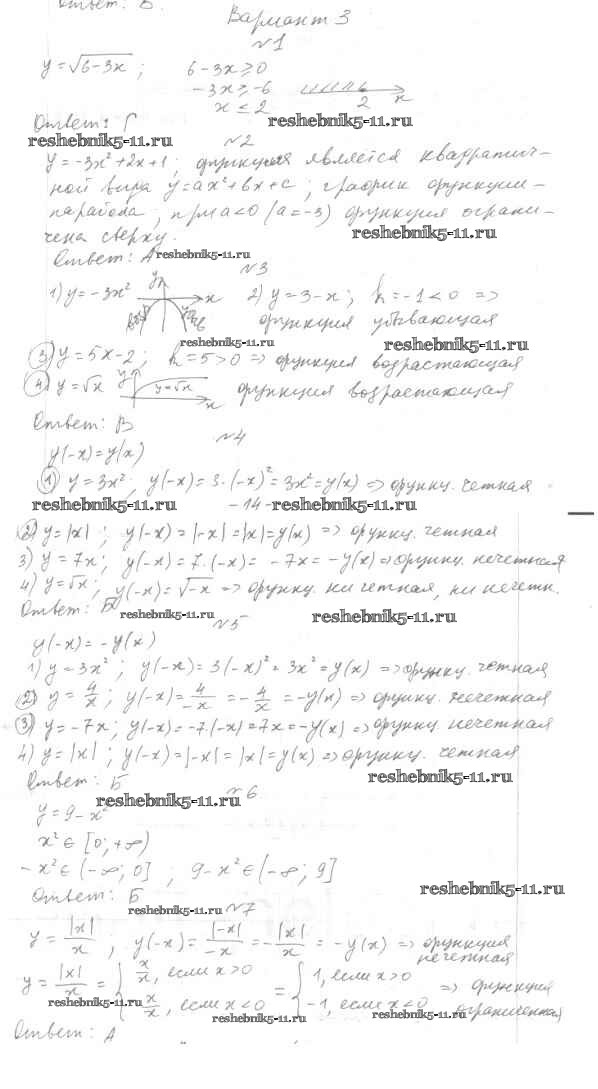 Ответ: В.
Вариант 3
№1
y = √6-3x ; 6-3x ≥ 0
-3x ≥ -6
x ≤ 2 2 x
Ответ: Г
reshebnik5-11.ru
reshebnik5-11.ru
№2
y = -3x² + 2x + 1 ; функция является квадратич-
ной вида y = ax² + bx + c ; график функции -
парабола, при a<0 (a = -3) функция ограни-
чена сверху.
reshebnik5-11.ru
Ответ: А
reshebnik5-11.ru
№3
1) y = -3x² y x 2) y = 3 - x ; k = -1 < 0 =>
функция убывающая
reshebnik5-11.ru
reshebnik5-11.ru
3) y = 5x - 2 ; k = 5 > 0 => функция возрастающая
4) y = √x y y = √x x функция возрастающая
Ответ: В
№4
y(-x) = y(x)
1) y = 3x² ; y(-x) = 3·(-x)² = 3x² = y(x) => функц. четная
reshebnik5-11.ru
- 14 -
reshebnik5-11.ru
2) y = |x| ; y(-x) = |-x| = |x| = y(x) => функц. четная
3) y = 7x ; y(-x) = 7·(-x) = -7x = -y(x) => функц. нечетная
4) y = √x ; y(-x) = √-x => функц. ни четная, ни нечетн.
Ответ: Б
reshebnik5-11.ru
reshebnik5-11.ru
№5
y(-x) = -y(x)
1) y = 3x² ; y(-x) = 3(-x)² = 3x² = y(x) => функц. четная
2) y = 4/x ; y(-x) = 4/-x = -4/x = -y(x) => функц. нечетная
3) y = -7x ; y(-x) = -7·(-x) = 7x = -y(x) => функц. нечетная
4) y = |x| ; y(-x) = |-x| = |x| = y(x) => функц. четная
reshebnik5-11.ru
Ответ: Б
reshebnik5-11.ru
№6
y = 9 - x²
x² ∈ [0; +∞)
-x² ∈ (-∞; 0] ; 9 - x² ∈ (-∞; 9]
reshebnik5-11.ru
Ответ: Б
reshebnik5-11.ru
№7
y = |x|/x , y(-x) = |-x|/-x = -|x|/x = -y(x) => функция
нечетная
y = |x|/x = { x/x, если x > 0 = { 1, если x > 0 => функция
x/x, если x < 0 -1, если x < 0 ограниченная
reshebnik5-11.ru
reshebnik5-11.ru
reshebnik5-11.ru
Ответ: А